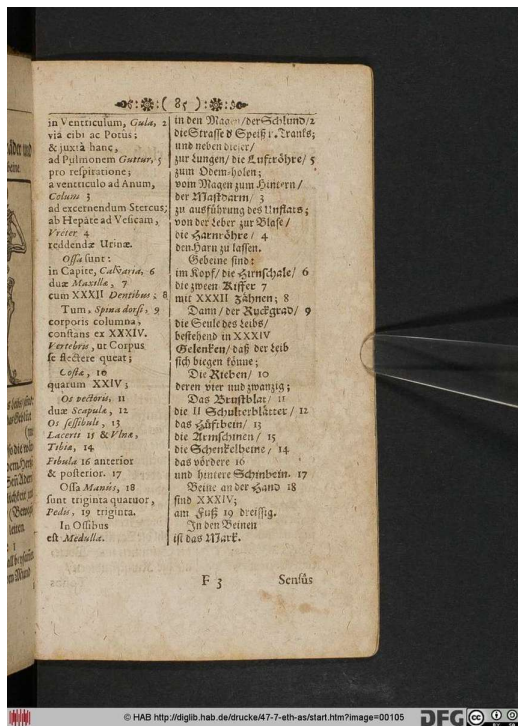 ( 85 )
in Ventriculum, Gula, 2
viâ cibi ac Potûs;
& juxtà hanc,
ad Pulmonem Guttur, 5
pro respiratione;
a ventriculo ad Anum,
Colum 3
ad excernendum Stercus;
ab Hepate ad Vesicam,
Vreter 4
reddendæ Urinæ.
Ossa sunt:
in Capite, Calvaria, 6
duæ Maxillæ, 7
cum XXXII Dentibus; 8
Tum, Spina dorsi, 9
corporis columna,
constans ex XXXIV.
Vertebris, ut Corpus
se flectere queat;
Costæ, 10
quarum XXIV;
Os pectoris, 11
duæ Scapulæ, 12
Os sessibuli, 13
Lacerti 15 & Vlnæ,
Tibiæ, 14
Fibula 16 anterior
& posterior. 17
Ossa Manûs, 18
sunt triginta quatuor,
Pedis, 19 triginta.
In Ossibus
est Medulla.
in den Magen/der Schlund/2
die Strasse d Speiß v. Tranks;
und neben dieser/
zur Lungen/die Luftröhre/ 5
zum Odem-holen;
vom Magen zum Hintern/
der Mastdarm/ 3
zu ausführung des Unflats;
von der Leber zur Blase/
die Harnröhre/ 4
den Harn zu lassen.
Gebeine sind:
im Kopf/die Hirnschale/ 6
die zween Kiffer 7
mit XXXII Zähnen; 8
Dann/der Ruckgrad/ 9
die Seule des Leibs/
bestehend in XXXIV
Gelenken/daß der Leib
sich biegen könne;
Die Rieben/ 10
deren vier und zwanzig;
Das Brustblat/ 11
die II Schulterblätter/ 12
das Hüftbein/ 13
die Armschinen/ 15
die Schenkelbeine/ 14
das vördere 16
und hintere Schinbein. 17
Beine an der Hand 18
sind XXXIV;
am Fuß 19 dreissig.
In den Beinen
ist das Mark.
F 3 Sensûs
© HAB http://diglib.hab.de/drucke/47-7-eth-as/start.htm?image=00105
DFG